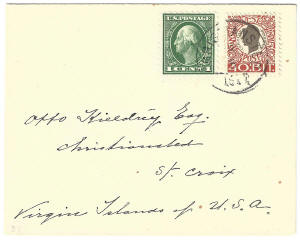 U.S. POSTAGE
1 CENT 1
40 BIT
Otto Hieldrey Esq.
Christiansted
St. Croix
Virgin Islands of U.S.A.